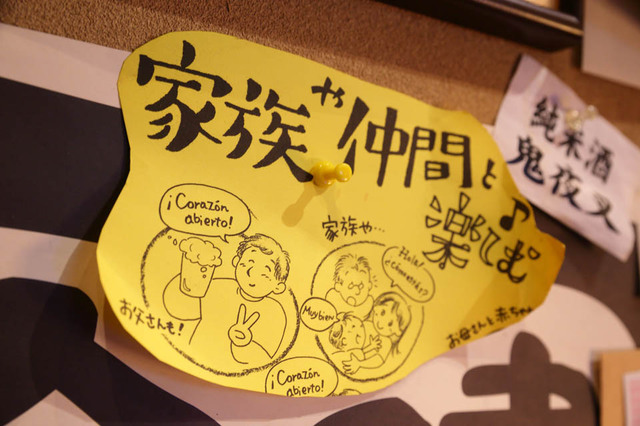 家族や仲間と
楽しむ♪
¡Corazón
abierto!
お父さんも!
家族や…
¡Hola!
Muy bien
お母さんと赤ちゃん
¡Corazón
abierto!
純米酒
鬼夜叉